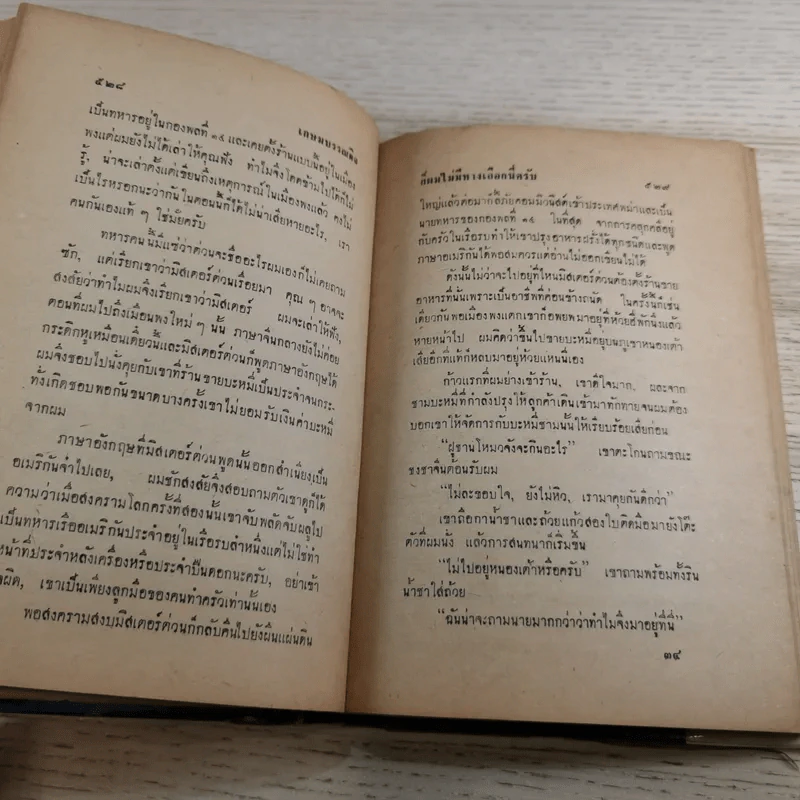 ๕๒๘
เกษมบรรณกิจ
เป็นทหารอยู่ในกองพลที่ ๑๔ และเคยตั้งร้านแบบนี้อยู่ในเมือง
พงแต่ผมยังไม่ได้เล่าให้คุณฟัง ทำไมจึงโดดข้ามไปได้ก็ไม่
รู้, น่าจะเล่าตั้งแต่เขียนถึงเหตุการณ์ในเมืองพงแล้ว คงไม่
เป็นไรหรอกนะว่ากันในตอนนี้ก็ได้ไม่น่าเสียหายอะไร, เรา
คนกันเองแท้ ๆ ใช่มั้ยครับ
ทหารคนนี้มีแซ่ว่าด่วนจะชื่ออะไรผมเองก็ไม่เคยถาม
ซัก, แต่เรียกเขาว่ามิสเตอร์ด่วนเรื่อยมา คุณ ๆ อาจจะ
สงสัยว่าทำไมผมจึงเรียกเขาว่ามิสเตอร์ ผมจะเล่าให้ฟัง,
ตอนที่ผมไปถึงเมืองพงใหม่ ๆ นั้น ภาษาจีนกลางยังไม่ค่อย
กระดิกหูเหมือนเดี๋ยวนี้และมิสเตอร์ด่วนก็พูดภาษาอังกฤษได้
ผมจึงชอบไปนั่งคุยกับเขาที่ร้านขายบะหมี่เป็นประจำจนกระ-
ทั่งเกิดชอบพอกันขนาดบางครั้งเขาไม่ยอมรับเงินค่าบะหมี่
จากผม
ภาษาอังกฤษที่มิสเตอร์ด่วนพูดนั้นออกสำเนียงเป็น
อเมริกันจ๋าไปเลย, ผมชักสงสัยจึงสอบถามตัวเขาดูก็ได้
ความว่าเมื่อสงครามโลกครั้งที่สองนั้นเขาจับพลัดจับผลูไป
เป็นทหารเรืออเมริกันประจำอยู่ในเรือรบลำหนึ่งแต่ไม่ใช่ทำ
หน้าที่ประจำหลังเครื่องหรือประจำปืนดอกนะครับ, อย่าเข้า
ใจผิด, เขาเป็นเพียงลูกมือของคนทำครัวเท่านั้นเอง
พอสงครามสงบมิสเตอร์ด่วนก็กลับคืนไปยังผืนแผ่นดิน
ก็ผมไม่มีทางเลือกนี่ครับ
๕๒๙
ใหญ่แล้วต่อมาก็ลี้ภัยคอมมิวนิสต์เข้าประเทศพม่าและเป็น
นายทหารของกองพลที่ ๑๔ ในที่สุด จากการคลุกคลีอยู่
กับครัวในเรือรบทำให้เขาปรุงอาหารฝรั่งได้ทุกชนิดและพูด
ภาษาอเมริกันได้พอสมควรแต่อ่านไม่ออกเขียนไม่ได้
ดังนั้นไม่ว่าจะไปอยู่ที่ไหนมิสเตอร์ด่วนต้องตั้งร้านขาย
อาหารที่นั้นเพราะเป็นอาชีพที่ค่อนข้างถนัด ในครั้งนี้ก็เช่น
เดียวกันพอเมืองพงแตกเขาก็อพยพมาอยู่ที่ห้วยฮี้พักนึงแล้ว
หายหน้าไป ผมคิดว่าขึ้นไปขายบะหมี่อยู่บนภูเขาหนองเต้า
เสียอีกที่แท้ก็หลบมาอยู่ห้วยแหนนี่เอง
ก้าวแรกที่ผมย่างเข้าร้าน, เขาดีใจมาก, ผละจาก
ชามบะหมี่ที่กำลังปรุงให้ลูกค้าเดินเข้ามาทักทายจนผมต้อง
บอกเขาให้จัดการกับบะหมี่ชามนั้นให้เรียบร้อยเสียก่อน
“ฝูชานโหมวจังจะกินอะไร” เขาตะโกนถามขณะ
ชงชาจีนต้อนรับผม
“ไม่ละขอบใจ, ยังไม่หิว, เรามาคุยกันดีกว่า”
เขาถือกาน้ำชาและถ้วยแก้วสองใบติดมือมายังโต๊ะ
ตัวที่ผมนั่ง แล้วการสนทนาก็เริ่มขึ้น
“ไม่ไปอยู่หนองเต้าหรือครับ” เขาถามพร้อมทั้งริน
น้ำชาใส่ถ้วย
“ฉันน่าจะถามนายมากกว่าว่าทำไมจึงมาอยู่ที่นี่”
๓๔